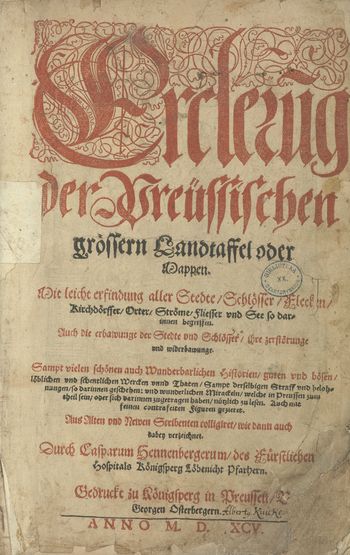 Ercleru̅g
der Preüssischen
grössern Landtaffel oder
Mappen.
Mit leichter erfindung aller Stedte/ Schlösser/ Flecken/
Kirchdörffer/ Orter/ Ströme/ Fliesser vnd See so dar-
innen begriffen.
Auch die erbawunge der Stedte vnd Schlösser/ ihre zerstörunge
vnd widerbawunge.
Sampt vielen schönen auch Wunderbarlichen Historien/ guten vnd bösen/
löblichen vnd schentlichen Wercken vnnd Thaten/ Sampt derselbigen Straff vnd beloh-
nungen/ so darinnen geschehen: vnd wunderlichen Miracklen/ welche in Preussen zum
theil sein/ oder sich darinnen zugetragen haben/ nützlich zu lesen. Auch mit
feinen contrafeiten Figuren gezieret.
Aus Alten vnd Newen Scribenten colligiret/ wie dann auch
dabey verzeichnet.
Durch Casparum Hennenbergerum/ des Fürstlichen
Hospitals Königsperg Löbenicht Pfarhern.
Gedruckt zu Königsperg in Preussen/
Georgen Osterbergern.
ANNO M. D. XCV.